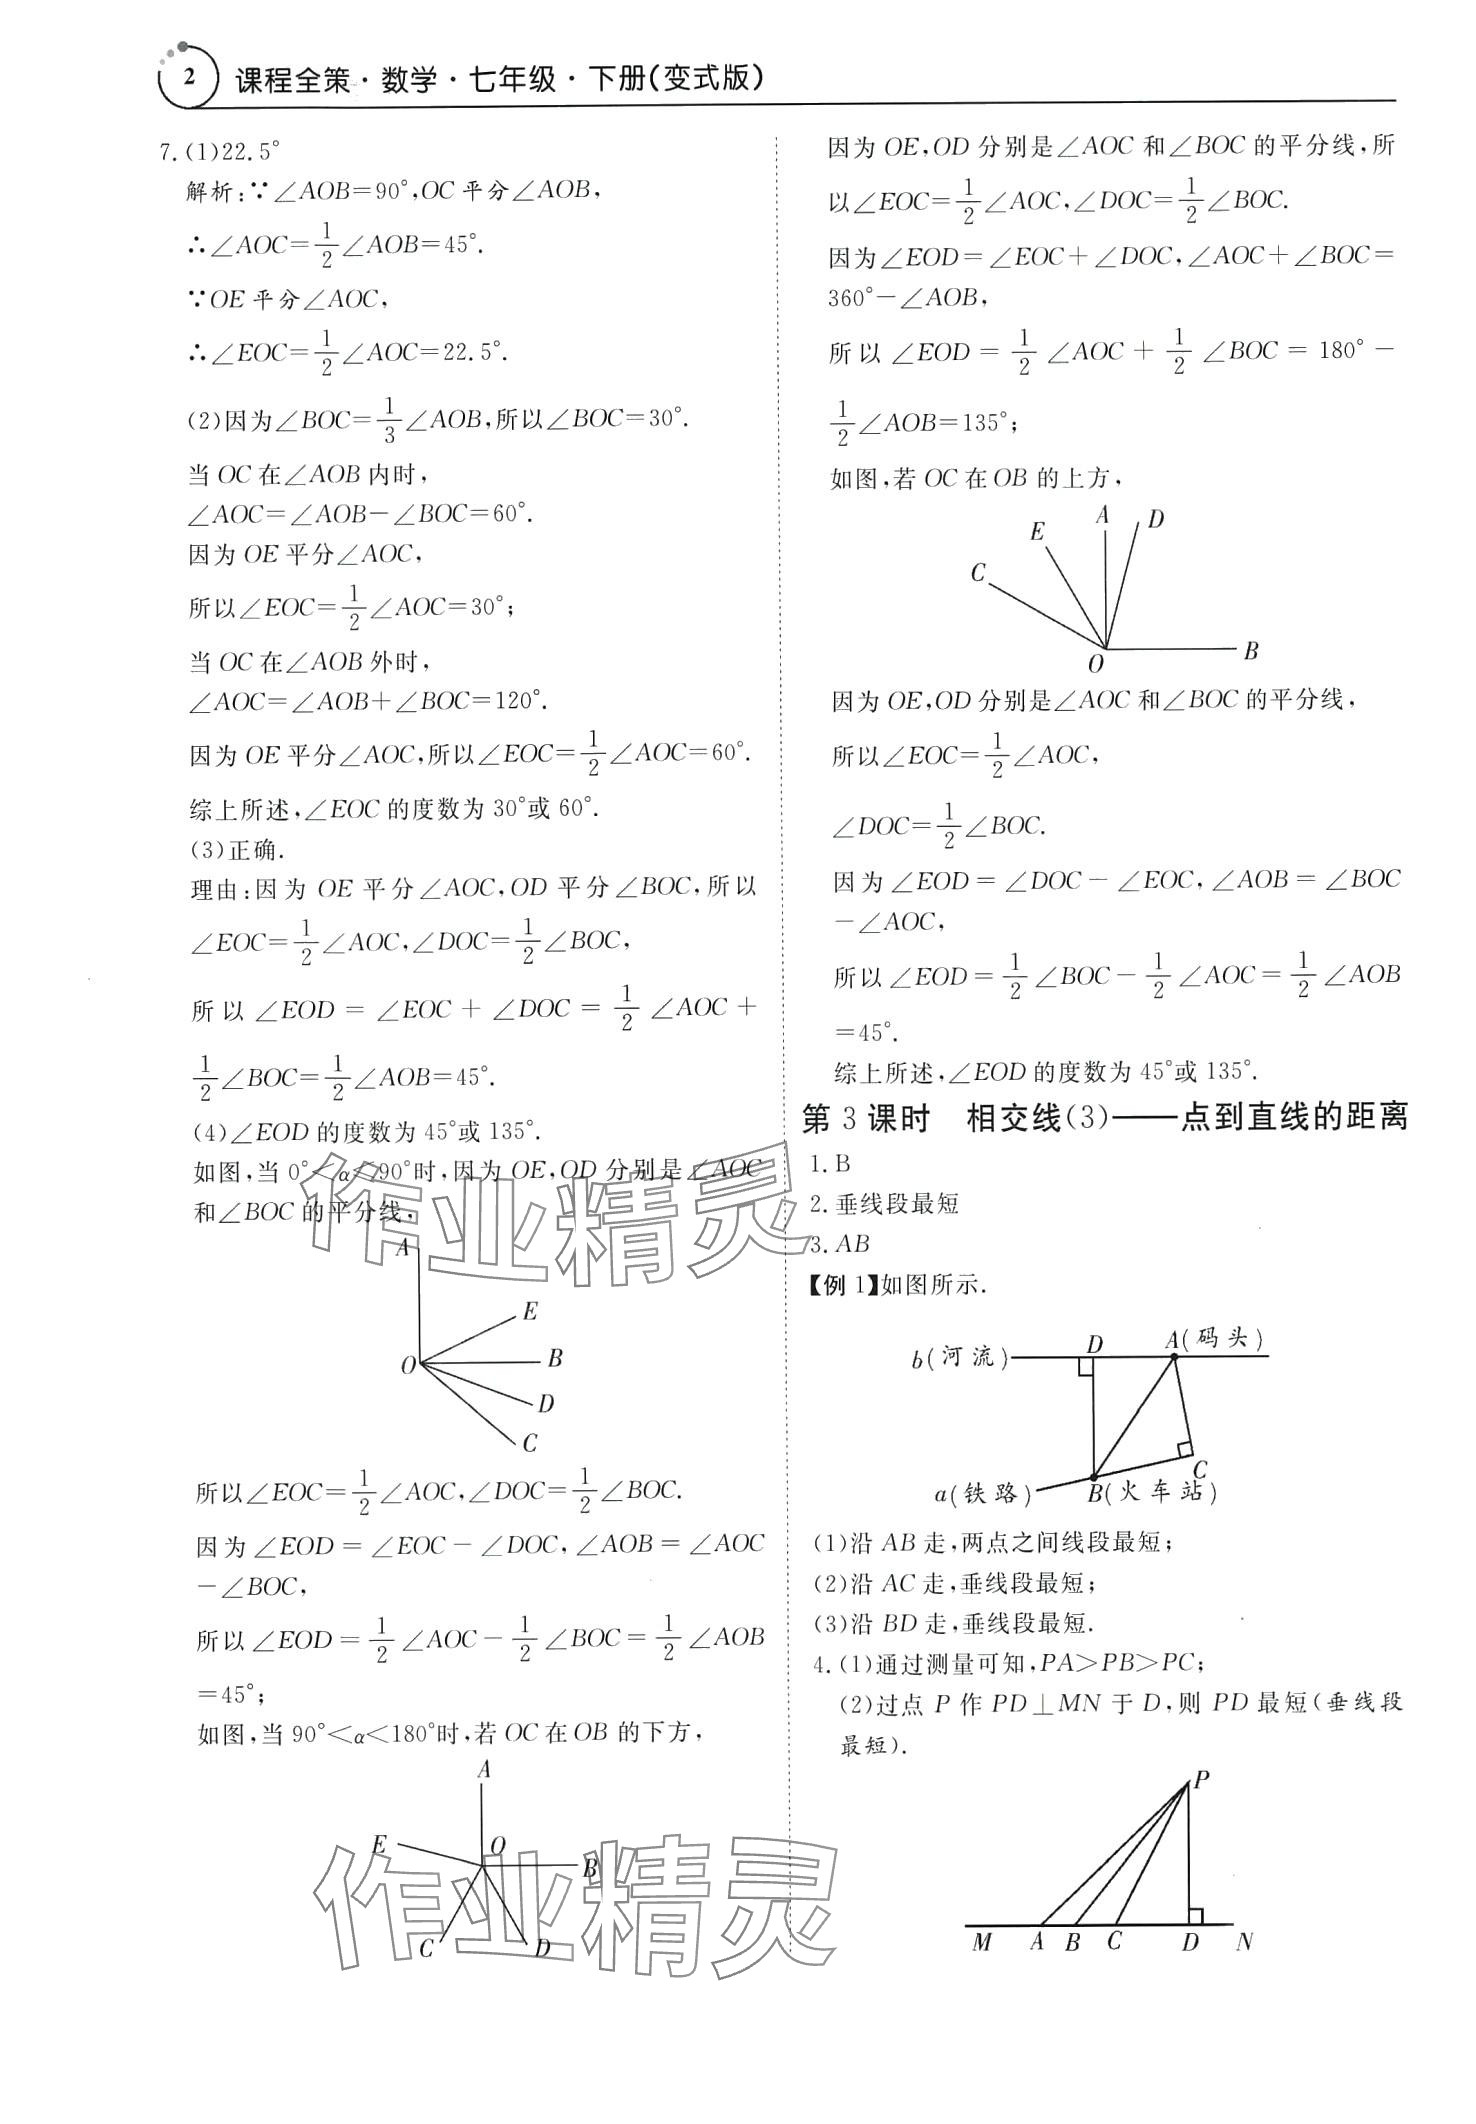 2 课程全策·数学·七年级·下册(变式版)
7.(1)22.5°
解析:∵∠AOB=90°,OC平分∠AOB,
∴∠AOC=1/2∠AOB=45°.
∵OE平分∠AOC,
∴∠EOC=1/2∠AOC=22.5°.
(2)因为∠BOC=1/3∠AOB,所以∠BOC=30°.
当OC在∠AOB内时,
∠AOC=∠AOB-∠BOC=60°.
因为OE平分∠AOC,
所以∠EOC=1/2∠AOC=30°;
当OC在∠AOB外时,
∠AOC=∠AOB+∠BOC=120°.
因为OE平分∠AOC,所以∠EOC=1/2∠AOC=60°.
综上所述,∠EOC的度数为30°或60°.
(3)正确.
理由:因为OE平分∠AOC,OD平分∠BOC,所以
∠EOC=1/2∠AOC,∠DOC=1/2∠BOC,
所以∠EOD=∠EOC+∠DOC=1/2∠AOC+
1/2∠BOC=1/2∠AOB=45°.
(4)∠EOD的度数为45°或135°.
如图,当0°<α<90°时,因为OE,OD分别是∠AOC
和∠BOC的平分线,
A
E
O
B
D
C
所以∠EOC=1/2∠AOC,∠DOC=1/2∠BOC.
因为∠EOD=∠EOC-∠DOC,∠AOB=∠AOC
-∠BOC,
所以∠EOD=1/2∠AOC-1/2∠BOC=1/2∠AOB
=45°;
如图,当90°<α<180°时,若OC在OB的下方,
A
E
O
B
C
D
因为OE,OD分别是∠AOC和∠BOC的平分线,所
以∠EOC=1/2∠AOC,∠DOC=1/2∠BOC.
因为∠EOD=∠EOC+∠DOC,∠AOC+∠BOC=
360°-∠AOB,
所以∠EOD=1/2∠AOC+1/2∠BOC=180°-
1/2∠AOB=135°;
如图,若OC在OB的上方,
A
D
E
C
O
B
因为OE,OD分别是∠AOC和∠BOC的平分线,
所以∠EOC=1/2∠AOC,
∠DOC=1/2∠BOC.
因为∠EOD=∠DOC-∠EOC,∠AOB=∠BOC
-∠AOC,
所以∠EOD=1/2∠BOC-1/2∠AOC=1/2∠AOB
=45°.
综上所述,∠EOD的度数为45°或135°.
第3课时 相交线(3)——点到直线的距离
1.B
2.垂线段最短
3.AB
【例1】如图所示.
b(河流)
D
A(码头)
C
a(铁路)
B(火车站)
(1)沿AB走,两点之间线段最短;
(2)沿AC走,垂线段最短;
(3)沿BD走,垂线段最短.
4.(1)通过测量可知,PA>PB>PC;
(2)过点P作PD⊥MN于D,则PD最短(垂线段
最短).
P
M A B C D N
作业精灵
作业精灵